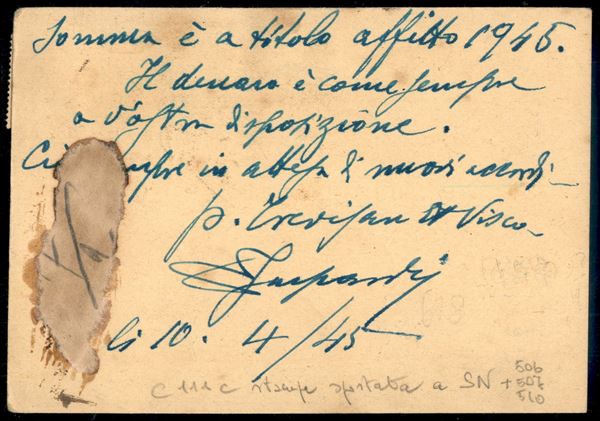 Somma è a titolo affitto 1945.
Il denaro è come sempre
a Vostra disposizione.
in attesa di nuovi accordi
p. Trevisan
Gaspardi
li 10. 4/45
C 111 C stampa spostata a SN +
506
507
510